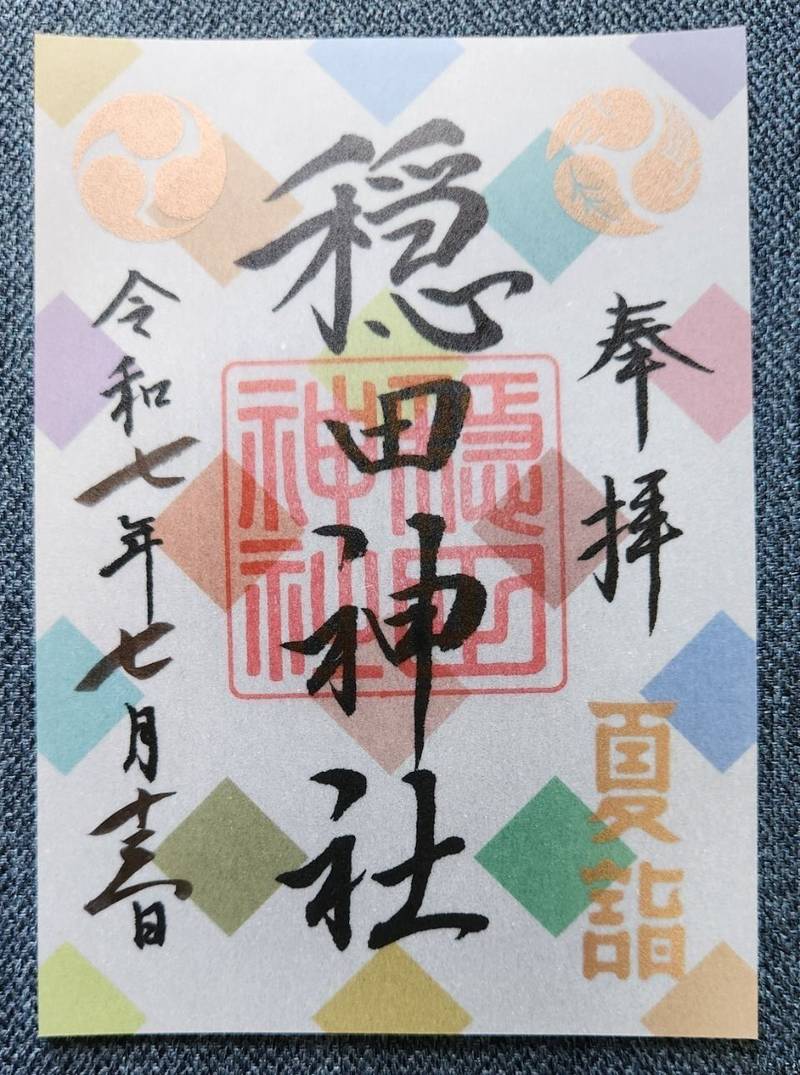 奉拝
夏詣
穏田神社
穏田
神社
令和七年七月十三日